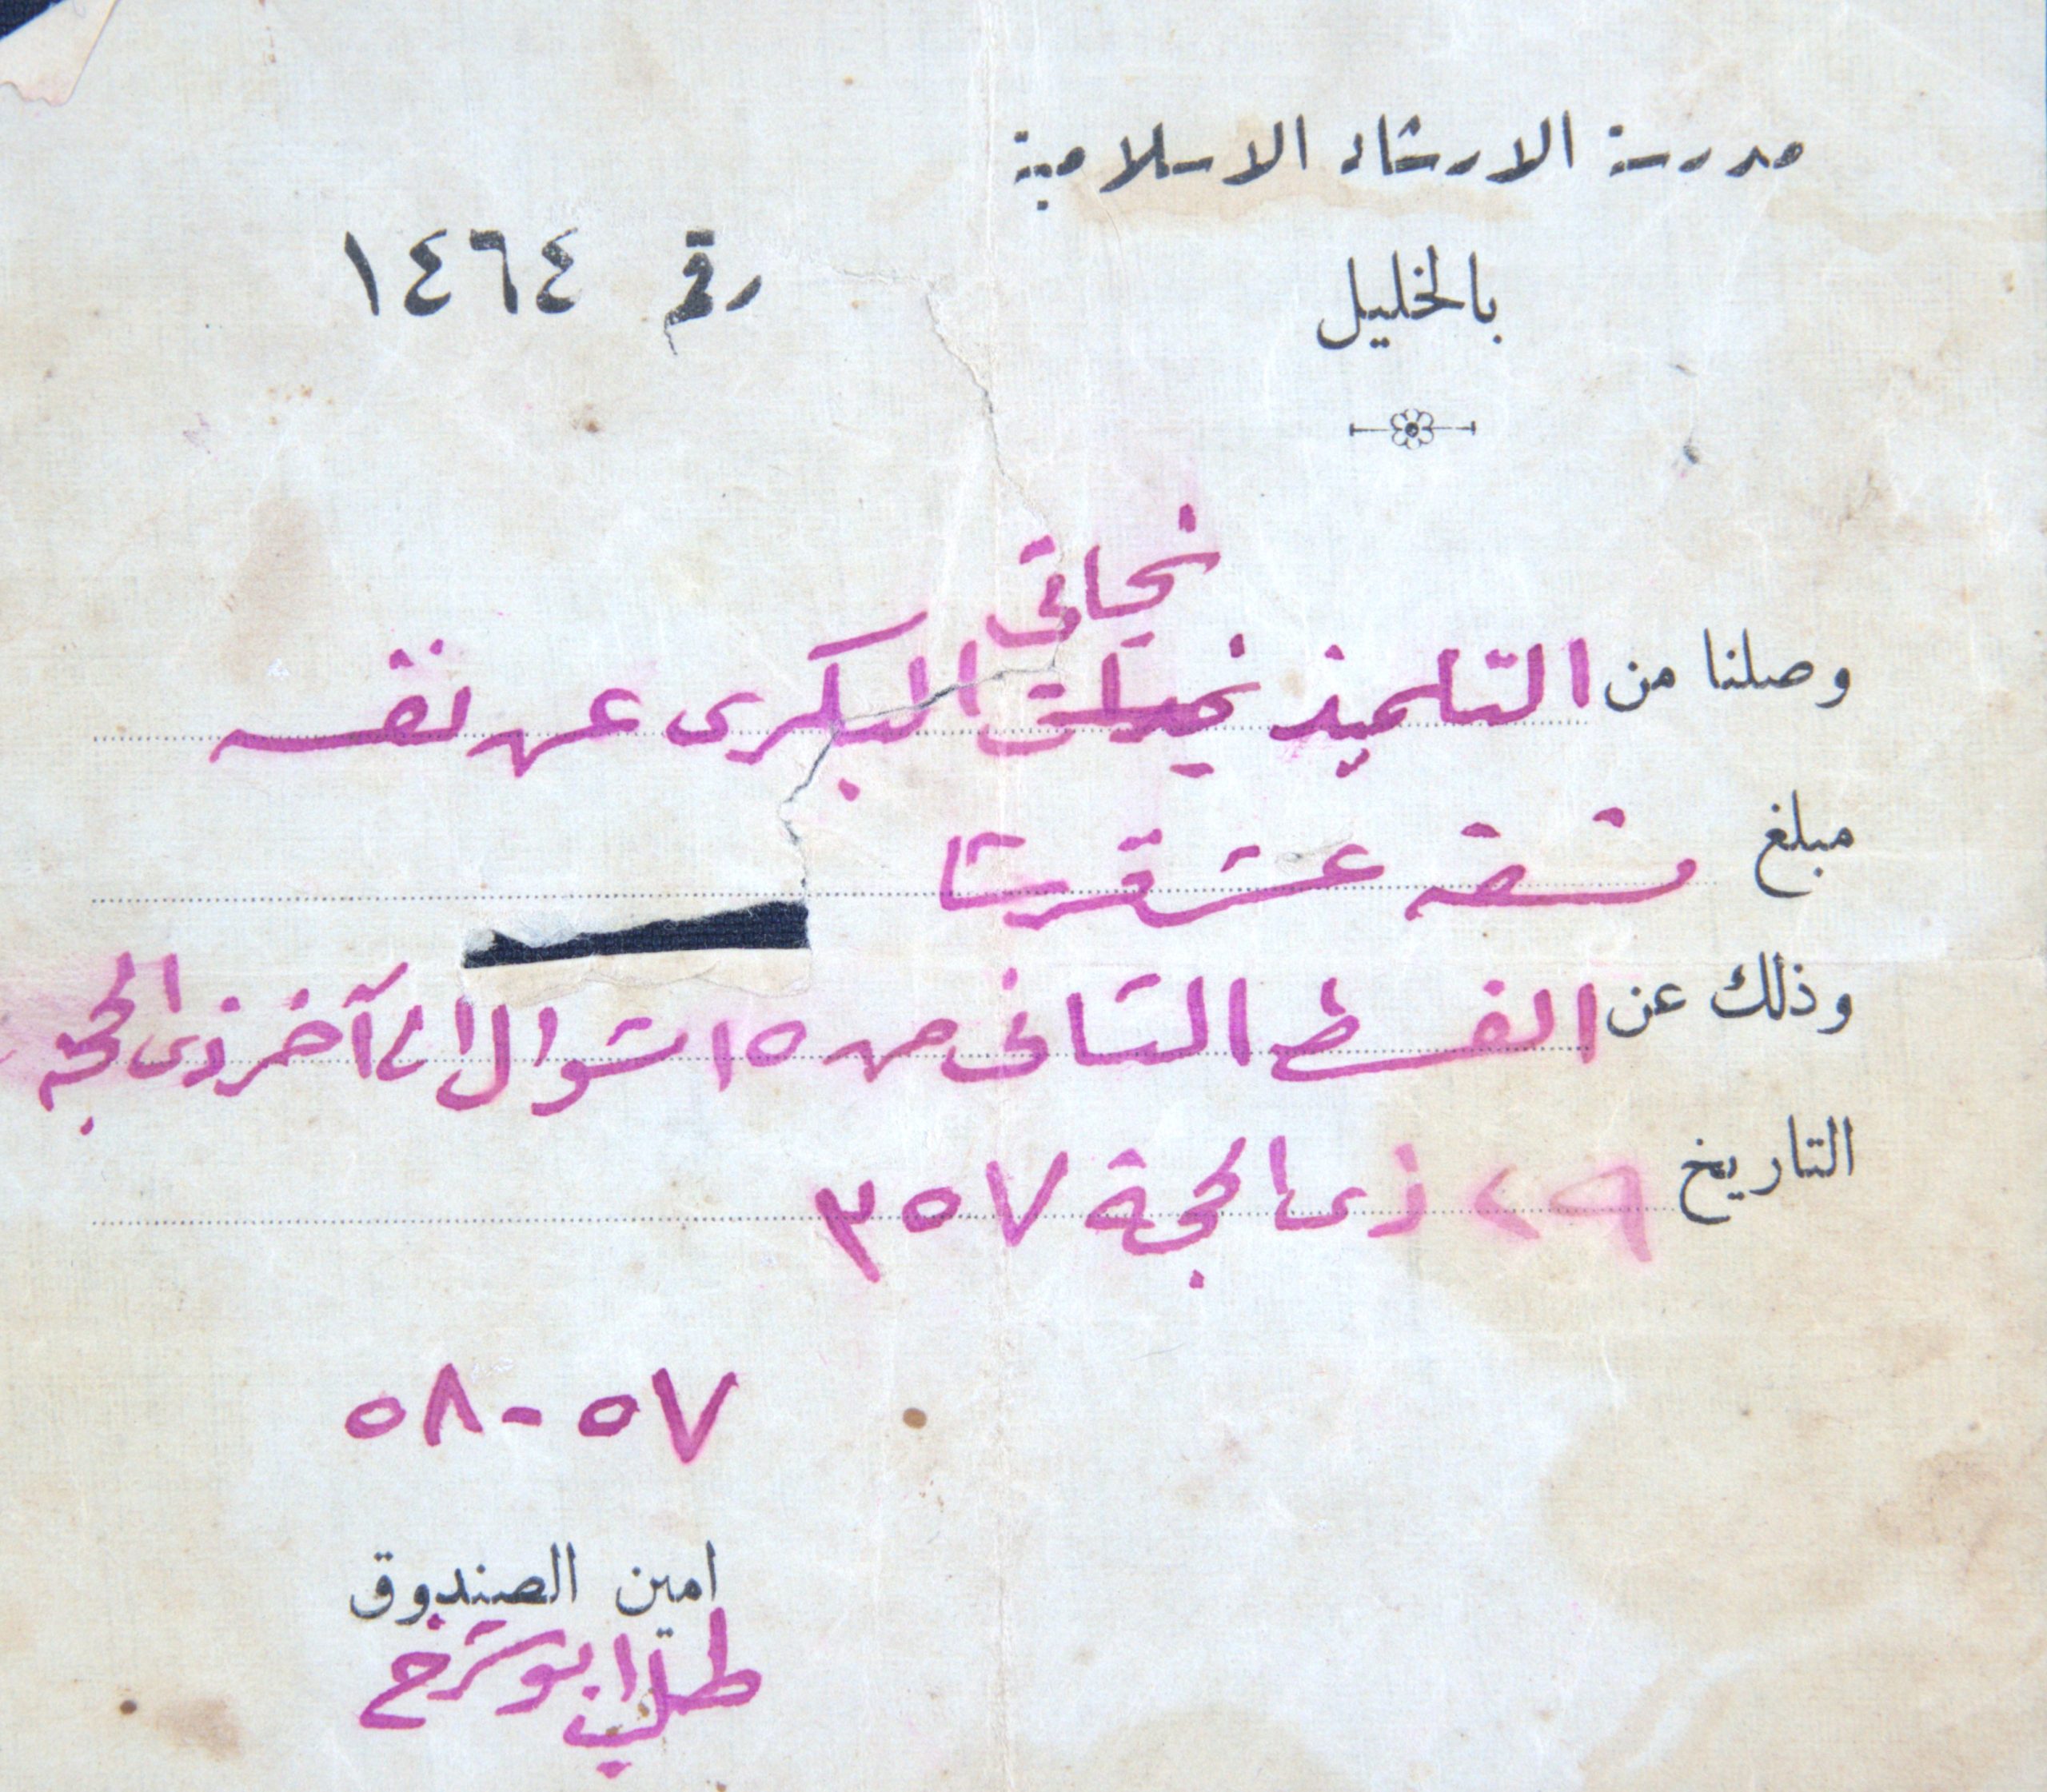 مدرسة الارشاد الاسلامية
بالخليل
رقم ١٤٦٤
نجاتي
وصلنا من التلميذ البكرى عن نفسه
مبلغ تسعة عشر قرشا
وذلك عن القسط الثانى من ١٥ شوال الى آخر ذى الحجة
التاريخ ٢٩ ذى الحجة ٣٥٧
٥٧-٥٨
امين الصندوق
طلب ابو شرخ